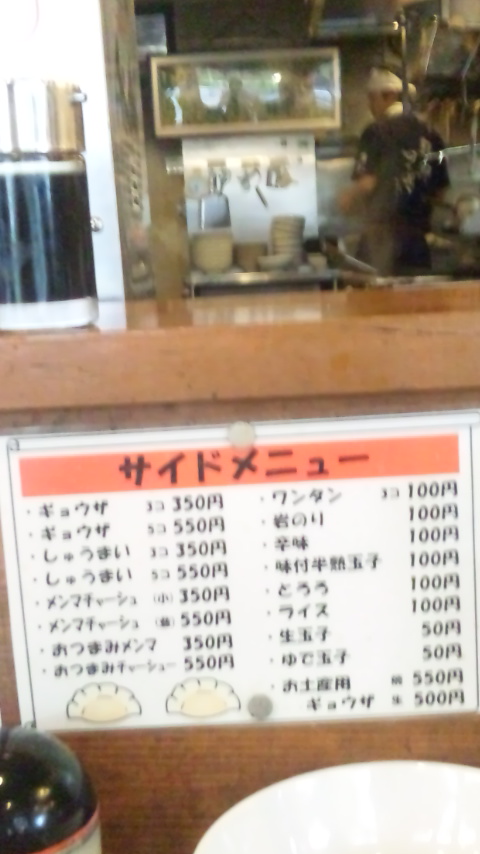 サイドメニュー
・ギョウザ 3コ 350円
・ギョウザ 5コ 550円
・しゅうまい 3コ 350円
・しゅうまい 5コ 550円
・メンマチャーシュ (小) 350円
・メンマチャーシュ 550円
・おつまみメンマ 350円
・おつまみチャーシュー 550円
・ワンタン 3コ 100円
・岩のり 100円
・辛味 100円
・味付半熟玉子 100円
・とろろ 100円
・ライス 100円
・生玉子 50円
・ゆで玉子 50円
・お土産用 焼 550円
ギョウザ 生 500円